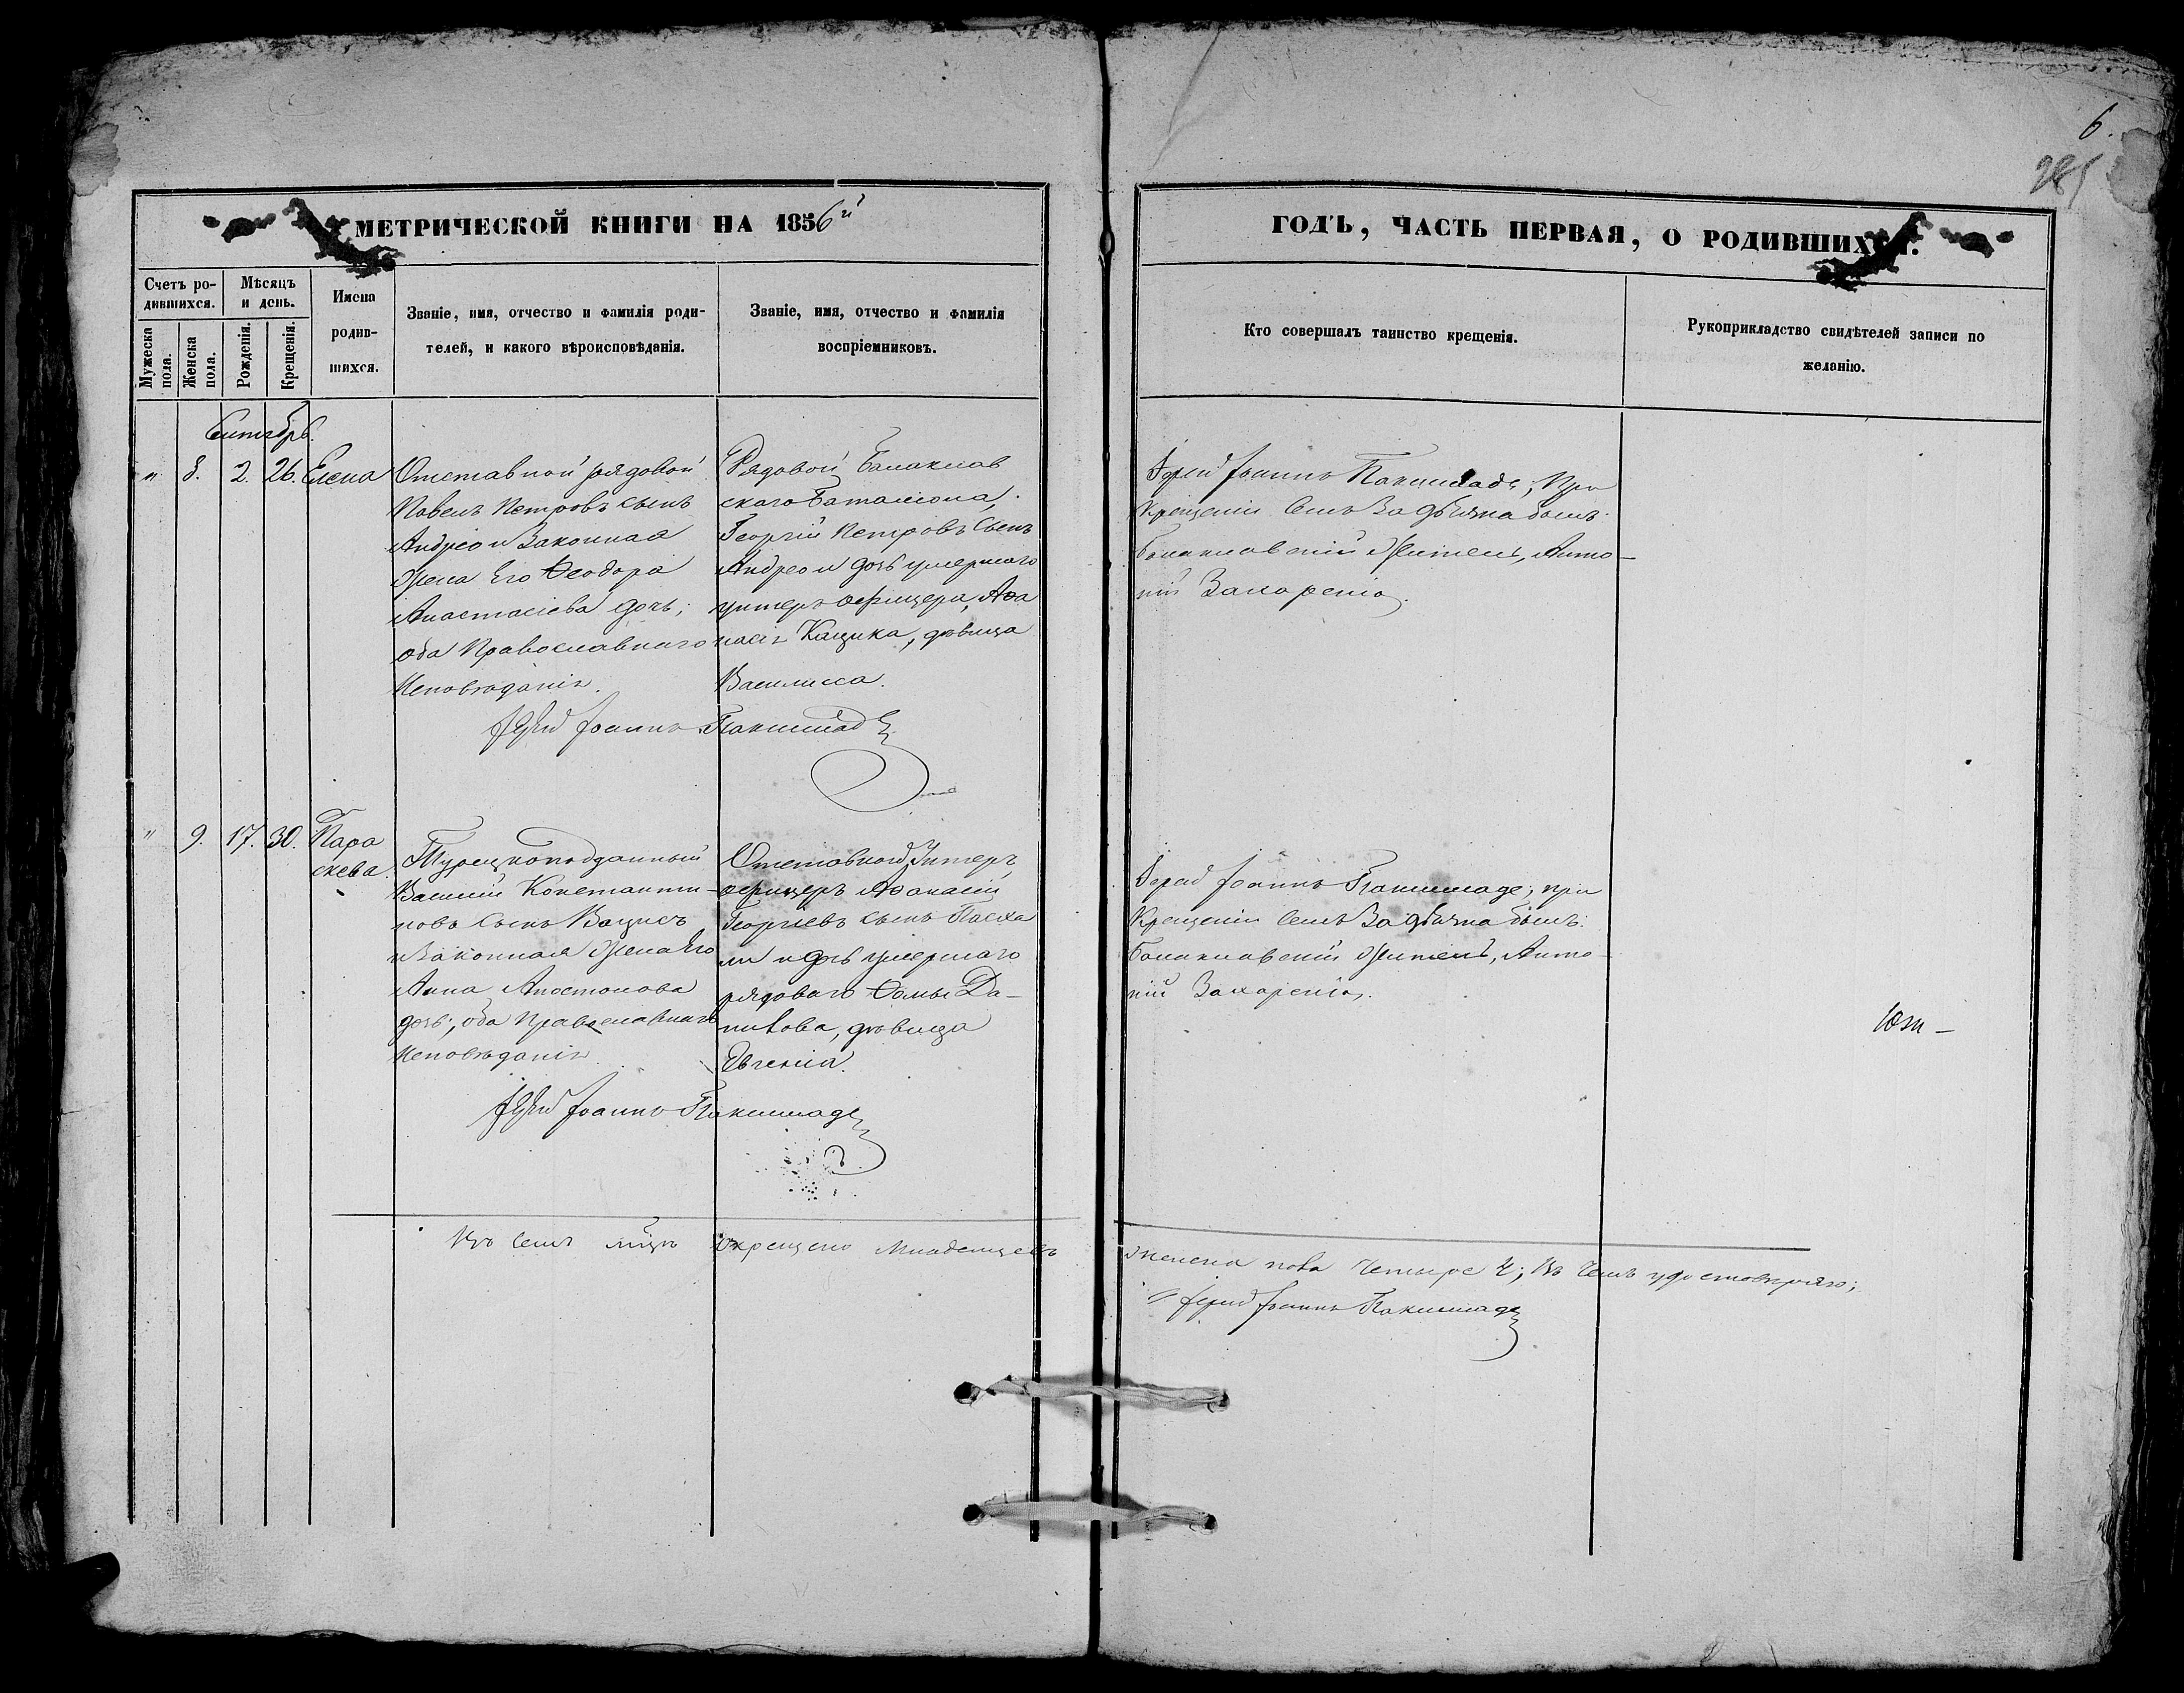 6.
285
МЕТРИЧЕСКОЙ КНИГИ НА 1856й
ГОДЪ, ЧАСТЬ ПЕРВАЯ, О РОДИВШИХСЯ.
Счетъ ро-
дившихся.
Мѣсяцъ
и день.
Мужеска
пола.
Женска
пола.
Рожденія.
Крещенія.
Имена
родив-
шихся.
Званіе, имя, отчество и фамилія роди-
телей, и какого вѣроисповѣданія.
Званіе, имя, отчество и фамилія
воспріемниковъ.
Кто совершалъ таинство крещенія.
Рукоприкладство свидѣтелей записи по
желанію.
Сентябрь.
" 8. 2. 26. Елена
Отставной рядовой
Павелъ Петровъ сынъ
Андрео и Законная
Жена Его Ѳеодора
Анастасіева дочь;
оба Православнаго
Исповѣданія.
Рядовой Балаклав
скаго Баталіона,
Георгій Петровъ Сынъ
Андрео и дочь умершаго
унтеръ офицера, Аѳа
насія Кацика, дѣвица
Василисса.
Іерей Іоаннъ
Іерей Іоаннъ при
Крещеніи Семъ За дьячка былъ:
Балаклавскій Житель, Анто-
ній
" 9. 17. 30. Пара
скева.
Турецкоподданный
Василій Константи-
новъ Сынъ Вацисъ
и Законная Жена Его
Анна Апостолова
дочь; оба Православнаго
Исповѣданія
Отставной Унтеръ
офицеръ Аѳанасій
Георгіевъ сынъ Пасха
ли и дочь умершаго
рядоваго Ѳомы Да-
никова, дѣвица
Евгенія.
Іерей Іоаннъ
Іерей Іоаннъ при
Крещеніи Семъ За дьячка былъ:
Балаклавскій Житель, Анто-
ній
Въ Семъ окрещено Младенцевъ женска пола Четыре 4; Въ Чемъ удостовѣряю;
Іерей Іоаннъ